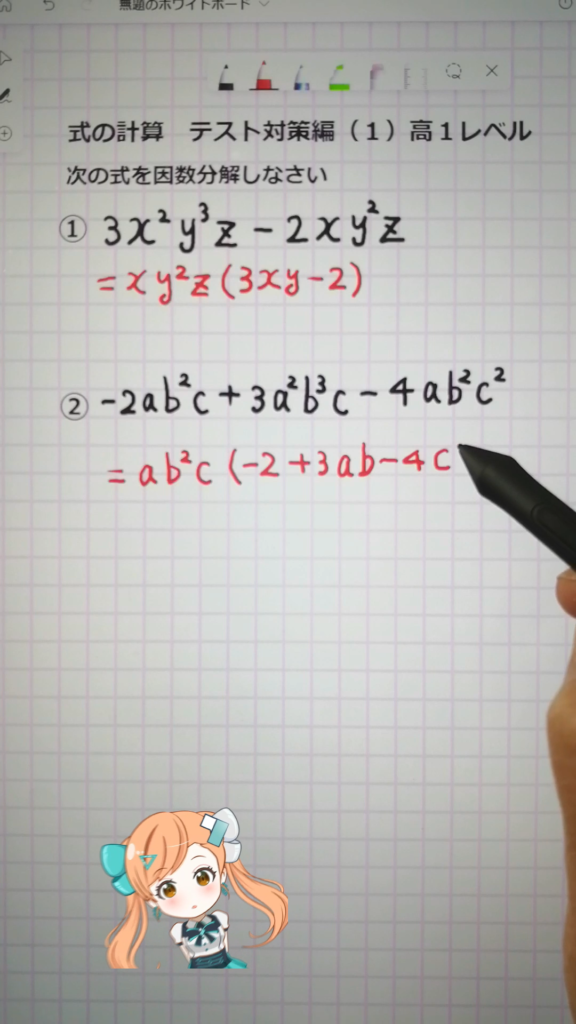 無題のホワイトボード
式の計算 テスト対策編（１）高１レベル
次の式を因数分解しなさい
① 3x²y³z - 2xy²z
= xy²z(3xy-2)
② -2ab²c + 3a²b³c - 4ab²c²
= ab²c(-2+3ab-4c